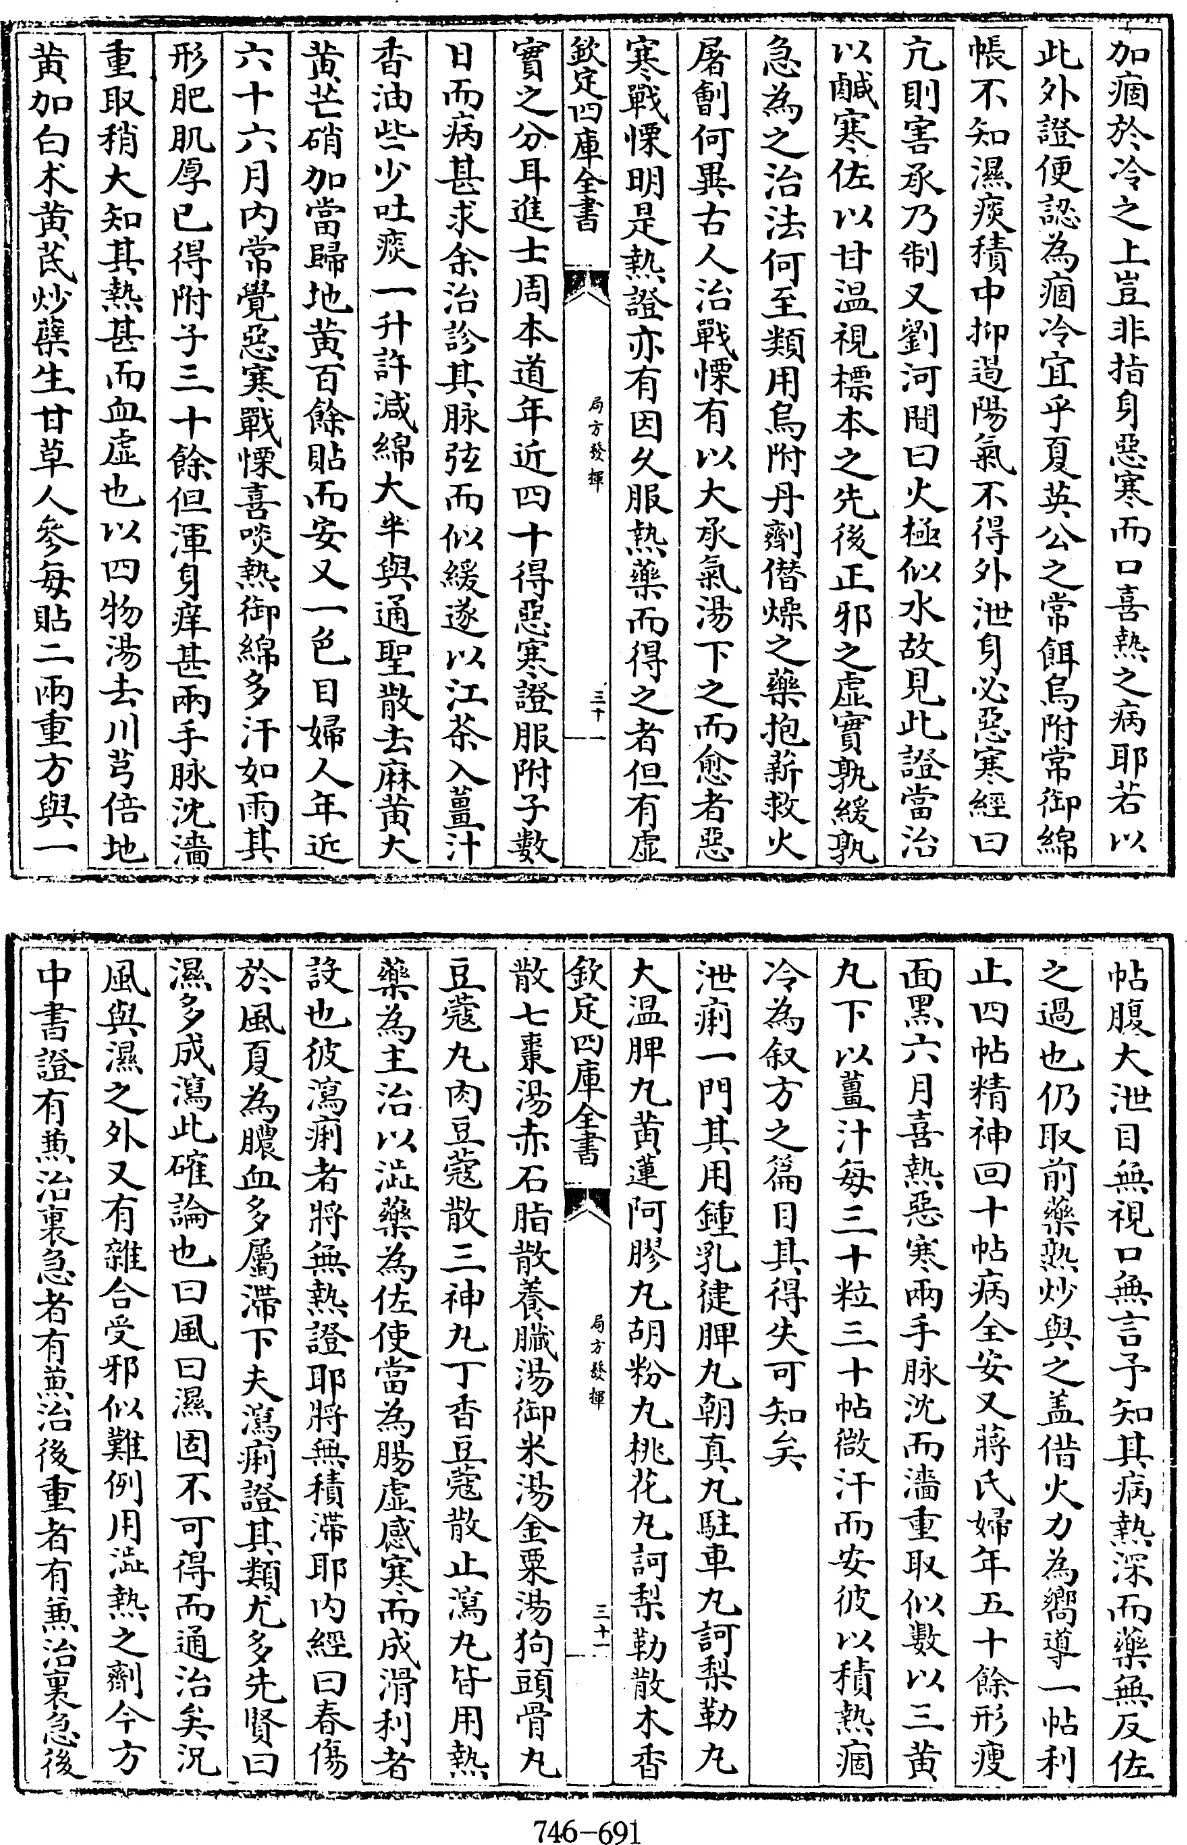 加痼於冷之上豈非指身惡寒而口喜熱之病耶若以
此外證便認為痼冷宜乎夏英公之常餌烏附常御綿
帳不知濕痰積中抑遏陽氣不得外泄身必惡寒經曰
亢則害承乃制又劉河間曰火極似水故見此證當治
以鹹寒佐以甘溫視標本之先後正邪之虛實孰緩孰
急為之治法何至類用烏附丹劑僭燥之藥抱薪救火
屠劊何異古人治戰慄有以大承氣湯下之而愈者惡
寒戰慄明是熱證亦有因久服熱藥而得之者但有虛
欽定四庫全書
局方發揮
三十
實之分耳進士周本道年近四十得惡寒證服附子數
日而病甚求余治診其脉弦而似緩遂以江茶入薑汁
香油些少吐痰一升許減綿大半與通聖散去麻黃大
黃芒硝加當歸地黃百餘貼而安又一色目婦人年近
六十六月內常覺惡寒戰慄喜啖熱御綿多汗如雨其
形肥肌厚已得附子三十餘但渾身痒甚兩手脉沈濇
重取稍大知其熱甚而血虛也以四物湯去川芎倍地
黃加白朮黃芪炒蘗生甘草人參每貼二兩重方與一
帖腹大泄目無視口無言予知其病熱深而藥無反佐
之過也仍取前藥熟炒與之盖借火力為嚮導一帖利
止四帖精神回十帖病全安又蔣氏婦年五十餘形瘦
面黑六月喜熱惡寒兩手脉沈而濇重取似數以三黃
丸下以薑汁每三十粒三十帖微汗而安彼以積熱痼
冷為叙方之篇目其得失可知矣
泄痢一門其用鍾乳健脾丸朝真丸駐車丸訶梨勒丸
大溫脾丸黃連阿膠丸胡粉丸桃花丸訶梨勒散木香
散七棗湯赤石脂散養臟湯御米湯金粟湯狗頭骨丸
欽定四庫全書
局方發揮
三十一
豆蔻丸肉豆蔻散三神丸丁香豆蔻散止瀉丸皆用熱
藥為主治以澁藥為佐使當為腸虛感寒而成滑利者
設也彼瀉痢者將無熱證耶將無積滯耶內經曰春傷
於風夏為膿血多屬滯下夫瀉痢證其類尤多先賢曰
濕多成瀉此確論也曰風曰濕固不可得而通治矣況
風與濕之外又有雜合受邪似難例用澁熱之劑今方
中書證有兼治裏急者有兼治後重者有兼治裏急後
746-691